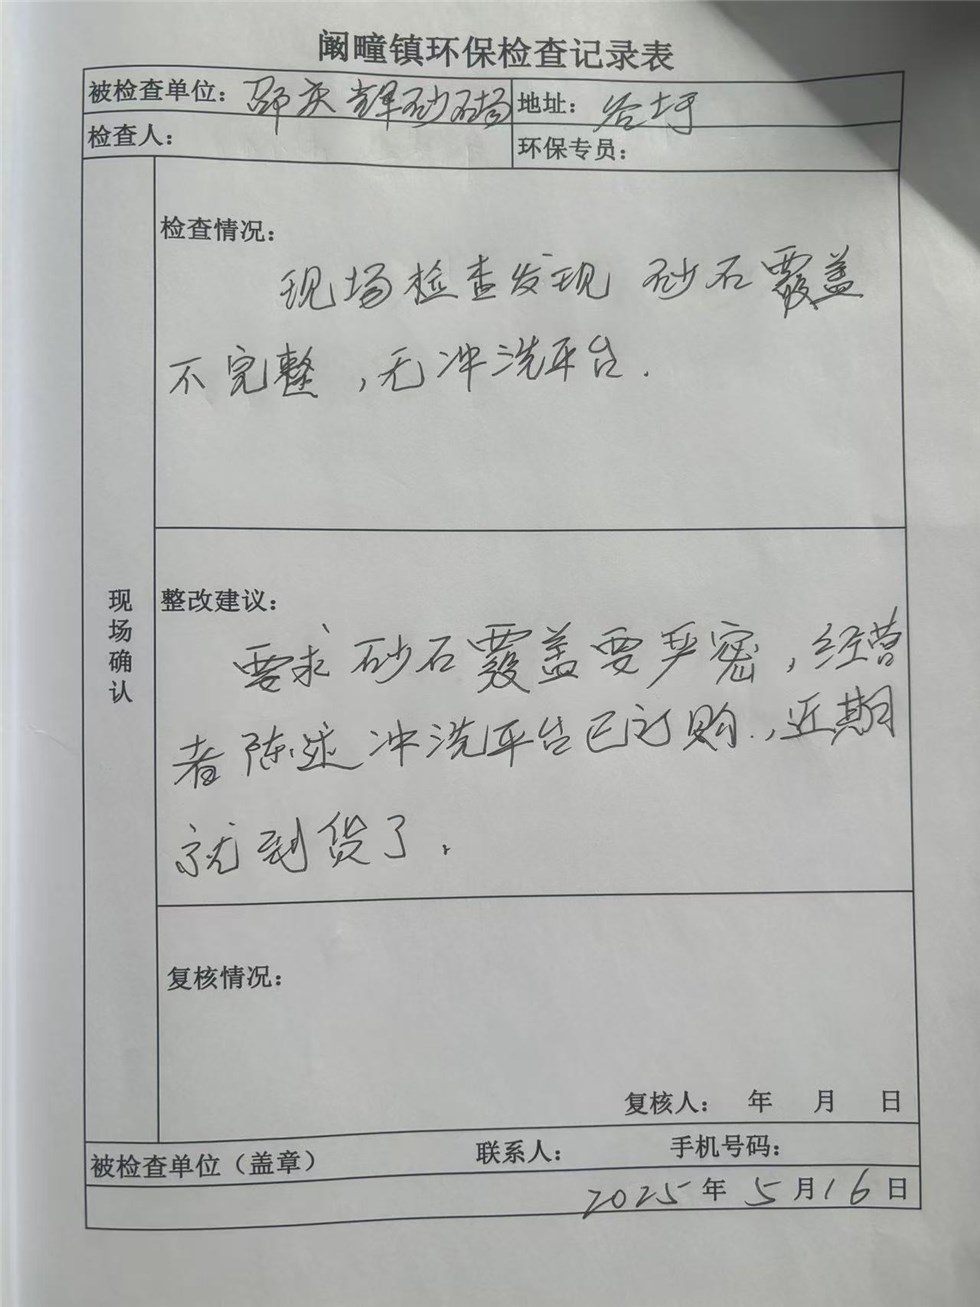 阚疃镇环保检查记录表
被检查单位：邵庆辉砂石场 地址：谷圩
检查人： 环保专员：
现场确认
检查情况：
现场检查发现 砂石覆盖
不完整，无冲洗平台.
整改建议：
要求砂石覆盖要严密，经营
者陈述冲洗平台已订购.，近期
就到货了.
复核情况：
复核人： 年 月 日
被检查单位（盖章） 联系人： 手机号码：
2025年5月16日